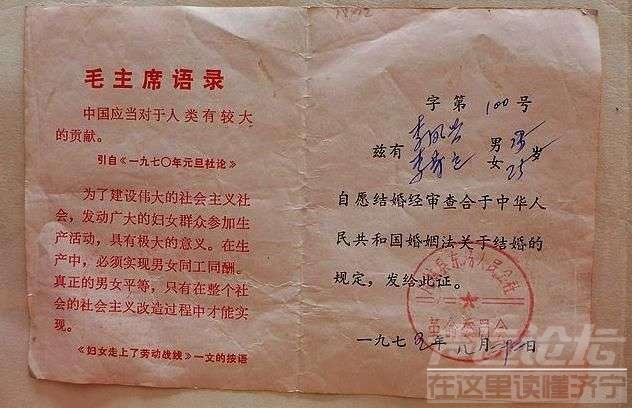 毛主席语录
中国应当对于人类有较大
的贡献。
引自《一九七〇年元旦社论》
为了建设伟大的社会主义社
会，发动广大的妇女群众参加生
产活动，具有极大的意义。在生
产中，必须实现男女同工同酬。
真正的男女平等，只有在整个社
会的社会主义改造过程中才能实
现。
《妇女走上了劳动战线》一文的按语
字第100号
兹有 男 岁
女25
自愿结婚经审查合于中华人
民共和国婚姻法关于结婚的
规定，发给此证。
人民公社
革命委员会
一九七五年八月
在这里读懂济宁